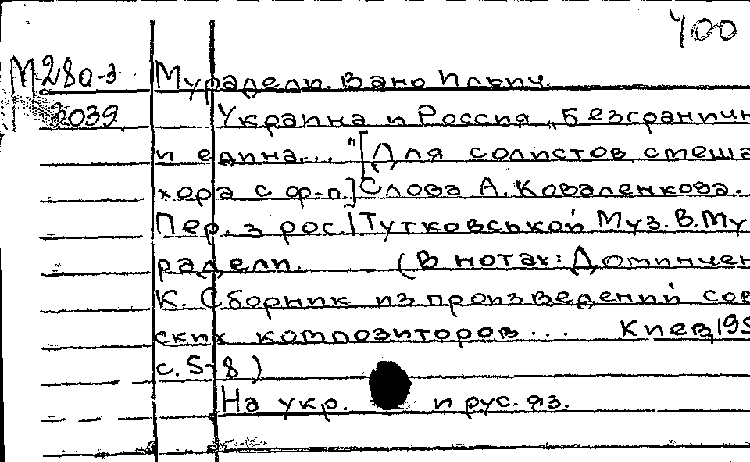 400
М280-3 Мурадели Вано Ильич
3039 Украина и Россия "Безгранич
и едина..." [Для солистов, смеша
хора с ф-п.] Слова А. Коваленкова.
Пер. з рос. Тутковськой Муз. В. Му
радели. (В нотах: Доминчен
К. Сборник из произведений сов
ских композиторов... Киев, 195
с. 5-8)
На укр. и рус. яз.